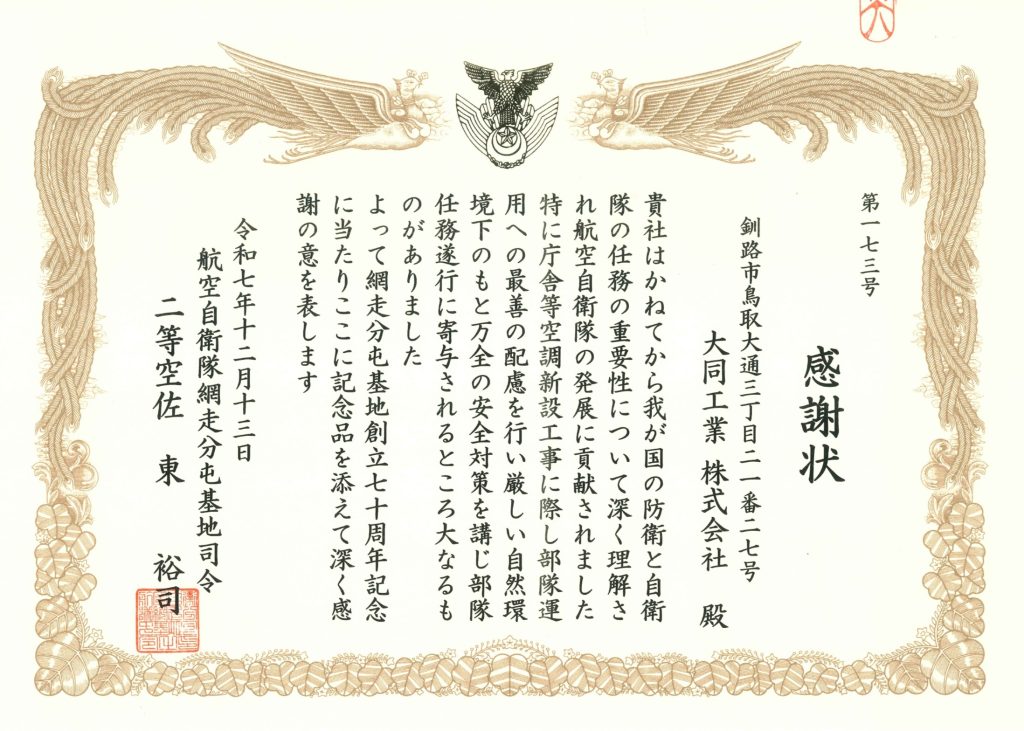 第一七三号
感謝状
釧路市鳥取大通三丁目二一番二七号
大同工業 株式会社 殿
貴社はかねてから我が国の防衛と自衛
隊の任務の重要性について深く理解さ
れ航空自衛隊の発展に貢献されました
特に庁舎等空調新設工事に際し部隊運
用への最善の配慮を行い厳しい自然環
境下のもと万全の安全対策を講じ部隊
任務遂行に寄与されるところ大なるも
のがありました
よって網走分屯基地創立七十周年記念
に当たりここに記念品を添えて深く感
謝の意を表します
令和七年十二月十三日
航空自衛隊網走分屯基地司令
二等空佐 東 裕司